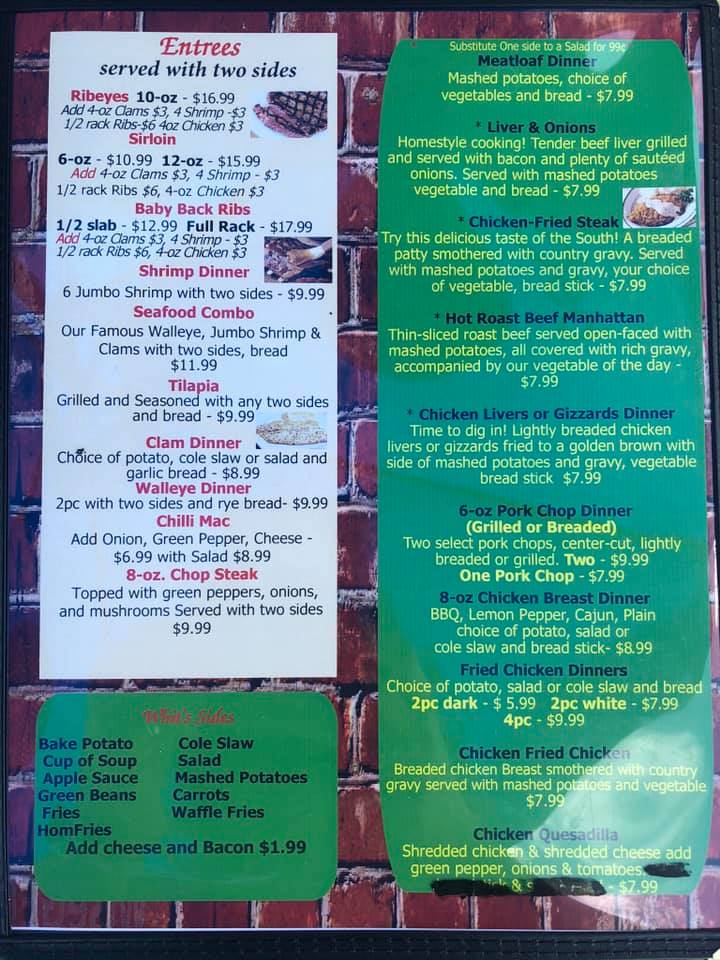 Entrees
served with two sides
Ribeyes 10-oz - $16.99
Add 4-oz Clams $3, 4 Shrimp -$3
1/2 rack Ribs-$6 4oz Chicken $3
Sirloin
6-oz - $10.99 12-oz - $15.99
Add 4-oz Clams $3, 4 Shrimp - $3
1/2 rack Ribs $6, 4-oz Chicken $3
Baby Back Ribs
1/2 slab - $12.99 Full Rack - $17.99
Add 4-oz Clams $3, 4 Shrimp - $3
1/2 rack Ribs $6, 4-oz Chicken $3
Shrimp Dinner
6 Jumbo Shrimp with two sides - $9.99
Seafood Combo
Our Famous Walleye, Jumbo Shrimp &
Clams with two sides, bread
$11.99
Tilapia
Grilled and Seasoned with any two sides
and bread - $9.99
Clam Dinner
Choice of potato, cole slaw or salad and
garlic bread - $8.99
Walleye Dinner
2pc with two sides and rye bread- $9.99
Chilli Mac
Add Onion, Green Pepper, Cheese -
$6.99 with Salad $8.99
8-oz. Chop Steak
Topped with green peppers, onions,
and mushrooms Served with two sides
$9.99
Whit's Sides
Bake Potato Cole Slaw
Cup of Soup Salad
Apple Sauce Mashed Potatoes
Green Beans Carrots
Fries Waffle Fries
HomFries
Add cheese and Bacon $1.99
Substitute One side to a Salad for 99¢
Meatloaf Dinner
Mashed potatoes, choice of
vegetables and bread - $7.99
* Liver & Onions
Homestyle cooking! Tender beef liver grilled
and served with bacon and plenty of sautéed
onions. Served with mashed potatoes
vegetable and bread - $7.99
* Chicken-Fried Steak
Try this delicious taste of the South! A breaded
patty smothered with country gravy. Served
with mashed potatoes and gravy, your choice
of vegetable, bread stick - $7.99
* Hot Roast Beef Manhattan
Thin-sliced roast beef served open-faced with
mashed potatoes, all covered with rich gravy,
accompanied by our vegetable of the day -
$7.99
* Chicken Livers or Gizzards Dinner
Time to dig in! Lightly breaded chicken
livers or gizzards fried to a golden brown with
side of mashed potatoes and gravy, vegetable
bread stick $7.99
6-oz Pork Chop Dinner
(Grilled or Breaded)
Two select pork chops, center-cut, lightly
breaded or grilled. Two - $9.99
One Pork Chop - $7.99
8-oz Chicken Breast Dinner
BBQ, Lemon Pepper, Cajun, Plain
choice of potato, salad or
cole slaw and bread stick- $8.99
Fried Chicken Dinners
Choice of potato, salad or cole slaw and bread
2pc dark - $ 5.99 2pc white - $7.99
4pc - $9.99
Chicken Fried Chicken
Breaded chicken Breast smothered with country
gravy served with mashed potatoes and vegetable
$7.99
Chicken Quesadilla
Shredded chicken & shredded cheese add
green pepper, onions & tomatoes.
& - $7.99